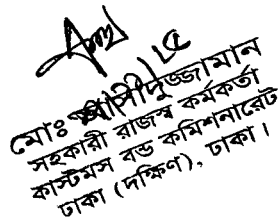 মোঃ
সহকারী রাজস্ব কর্মকর্তা
কাস্টমস বন্ড কমিশনারেট
ঢাকা (দক্ষিণ), ঢাকা।